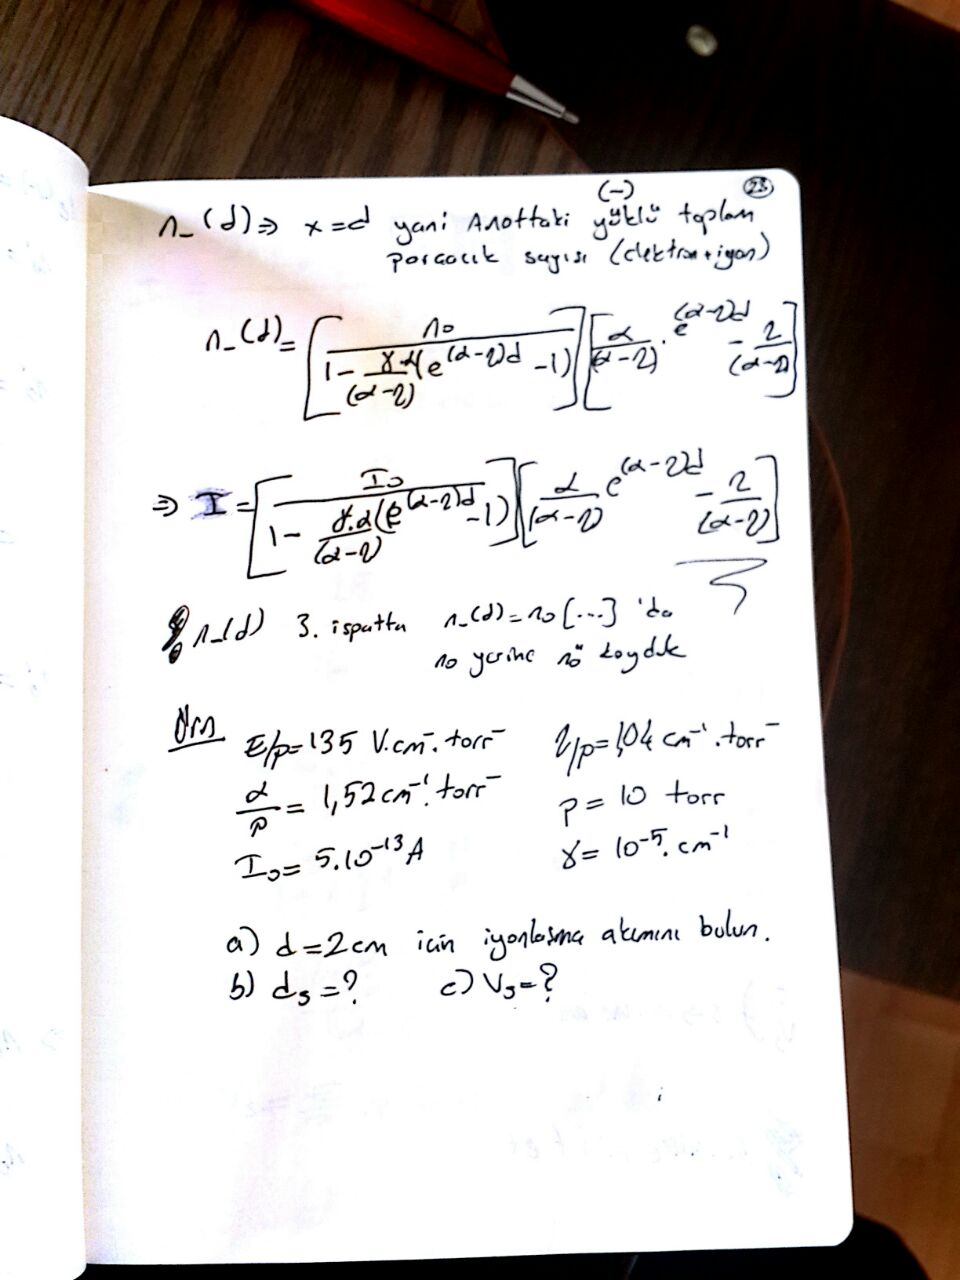 23
n_(d) ⇒ x=d yani Anottaki (-) yüklü toplam
parçacık sayısı (elektron+iyon)
n_(d) = [n0 / (1 - γ.α/(α-η) (e^(α-η)d - 1))] [α/(α-η) . e^(α-η)d - η/(α-η)]
⇒ I = [I0 / (1 - γ.α/(α-η) (e^(α-η)d - 1))] [α/(α-η) e^(α-η)d - η/(α-η)]
n_(d) 3. ispatta n_(d) = n0 [...] 'da
n0 yerine n0" koyduk
Örn
E/p = 135 V.cm⁻.torr⁻ η/p = 1,04 cm⁻¹.torr⁻
α/p = 1,52 cm⁻¹.torr⁻ p = 10 torr
I0 = 5.10⁻¹³ A γ = 10⁻⁵.cm⁻¹
a) d = 2 cm için iyonlaşma akımını bulun.
b) ds = ? c) Vs = ?